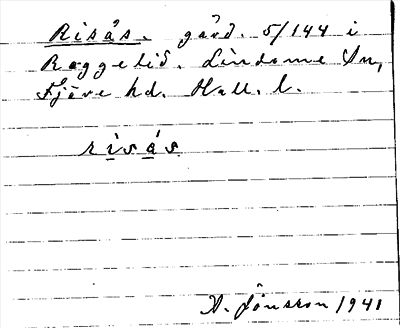 Risås. gård. 5/144 i
Raggelid. Lindome Sn,
Fjäre hd. Hall. l.
risås
A. Jönsson 1941